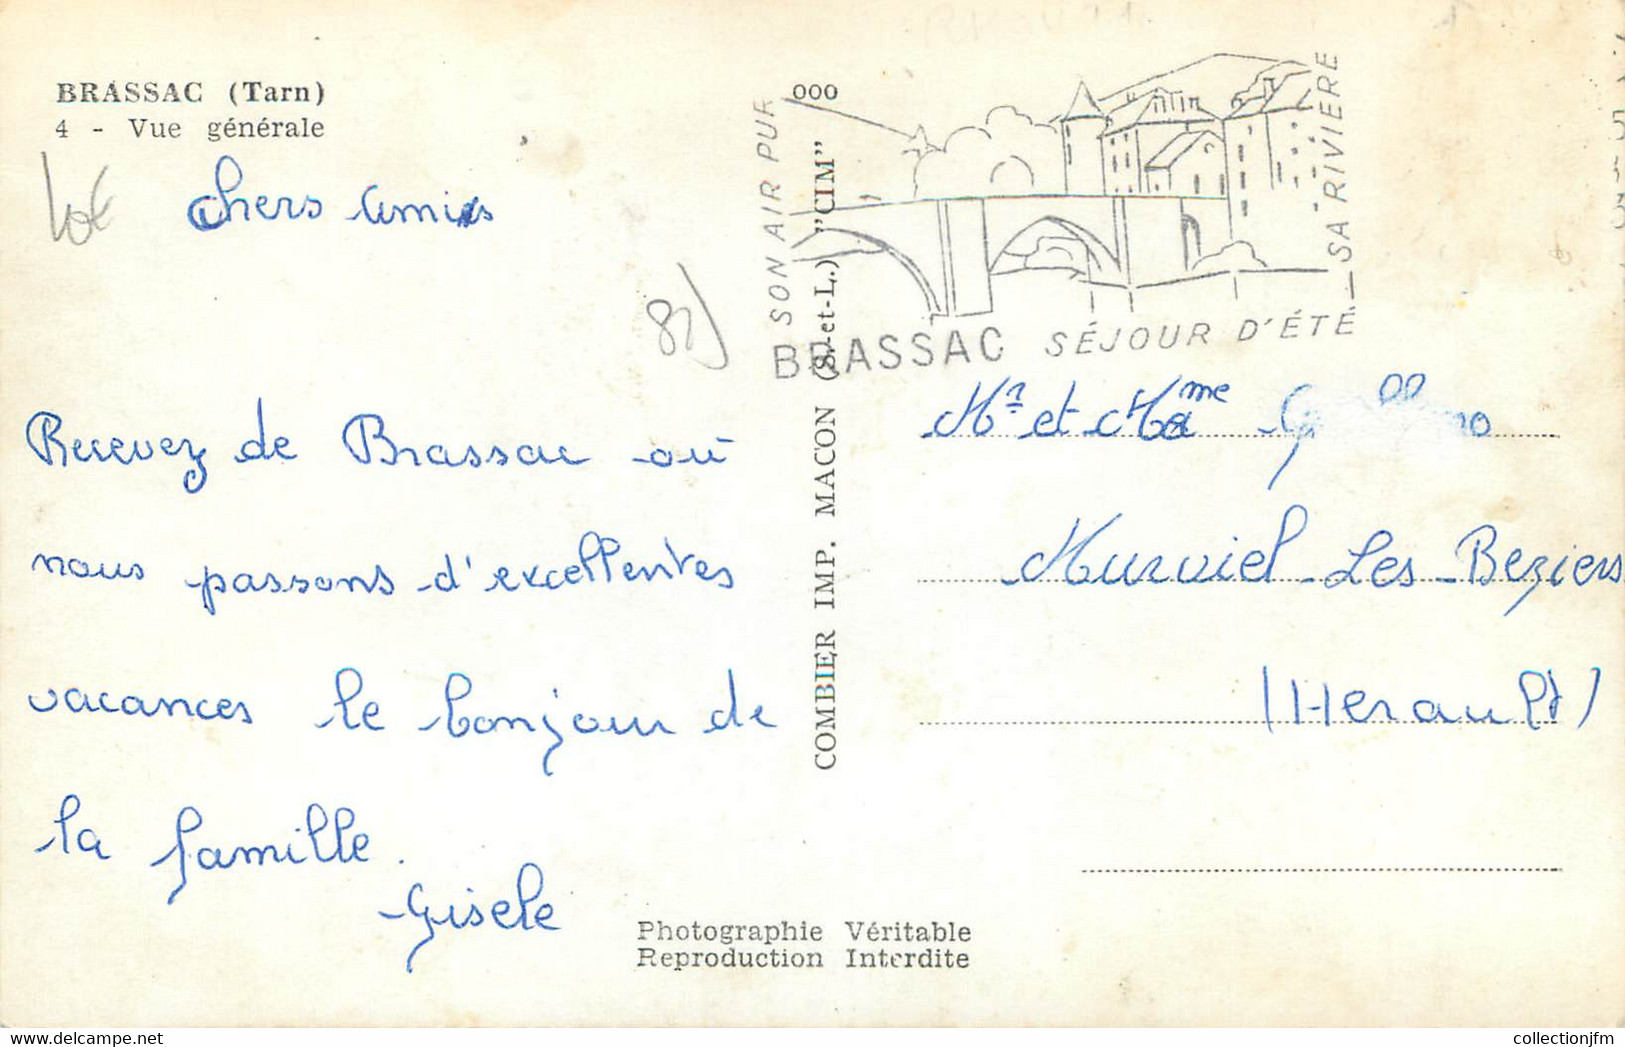 BRASSAC (Tarn)
4 - Vue générale
chers amis
81)
Recevez de Brassac où
nous passons d'excellentes
vacances le bonjour de
la famille.
Gisele
Photographie Véritable
Reproduction Interdite
COMBIER IMP. MACON (S.-et-L.) "CIM"
000
SON AIR PUR
BRASSAC SÉJOUR D'ÉTÉ
SA RIVIERE
Mr et Mame
Murviel-Les-Beziers
(Herault)
collectionjfm